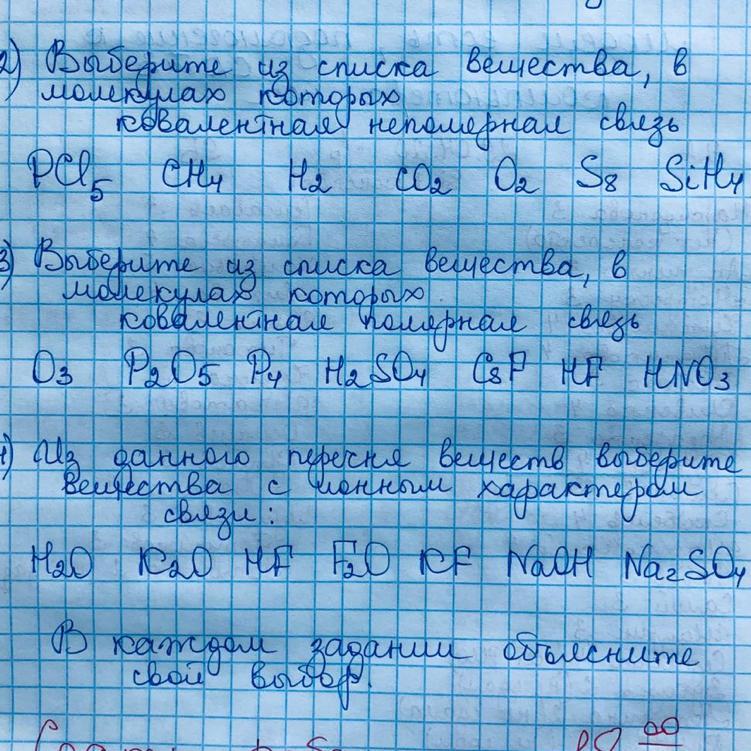 2) Выберите из списка вещества, в
молекулах которых
ковалентная неполярная связь
PCl5 CH4 H2 CO2 O2 S8 SiH4
3) Выберите из списка вещества, в
молекулах которых
ковалентная полярная связь
O3 P2O5 P4 H2SO4 CsF HF HNO3
4) Из данного перечня веществ выберите
вещества с ионным характером
связи:
H2O K2O HF F2O KF NaOH Na2SO4
В каждом задании объясните
свой выбор.